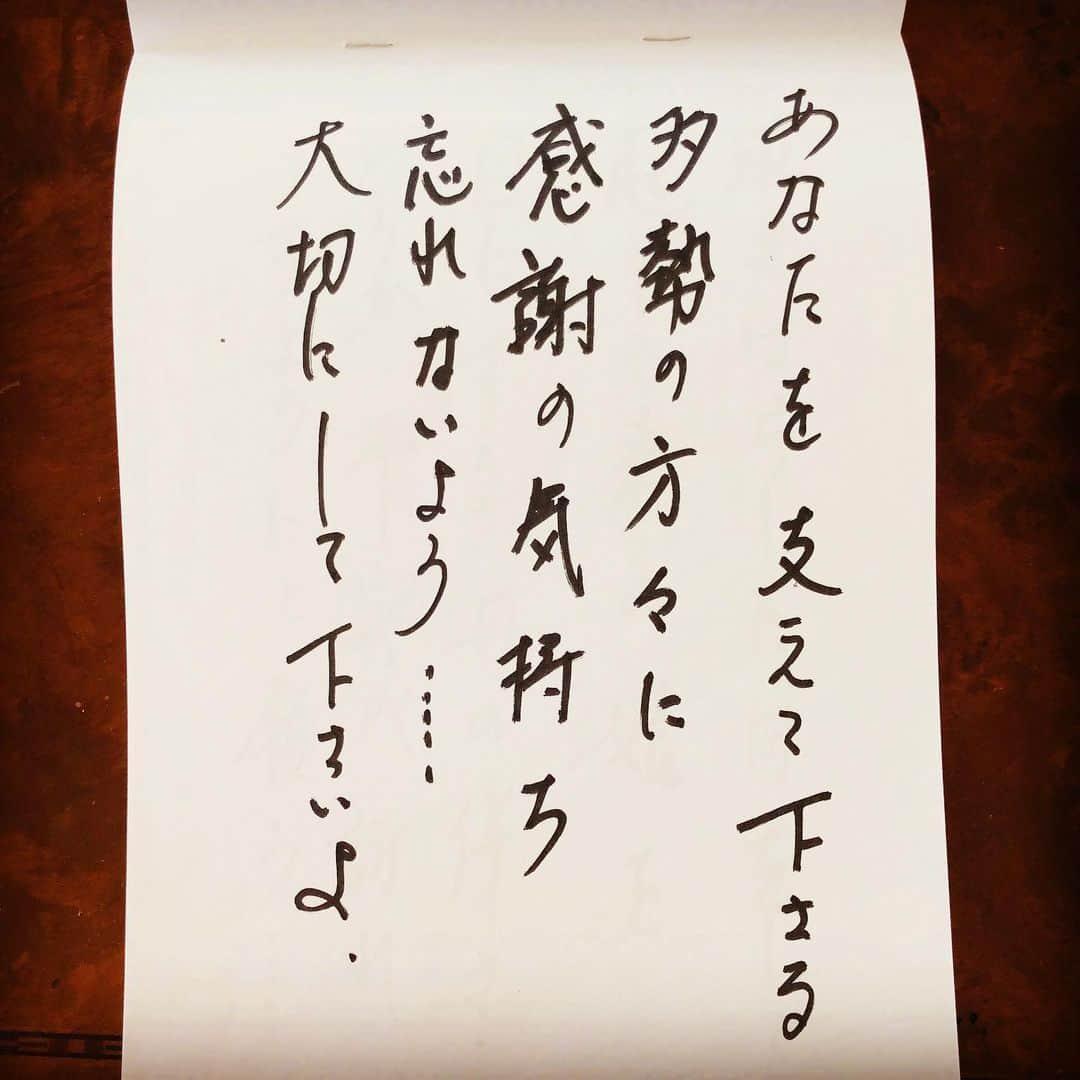 あなたを支えて下さる
多勢の方々に
感謝の気持ち
忘れないよう……
大切にして下さいよ.